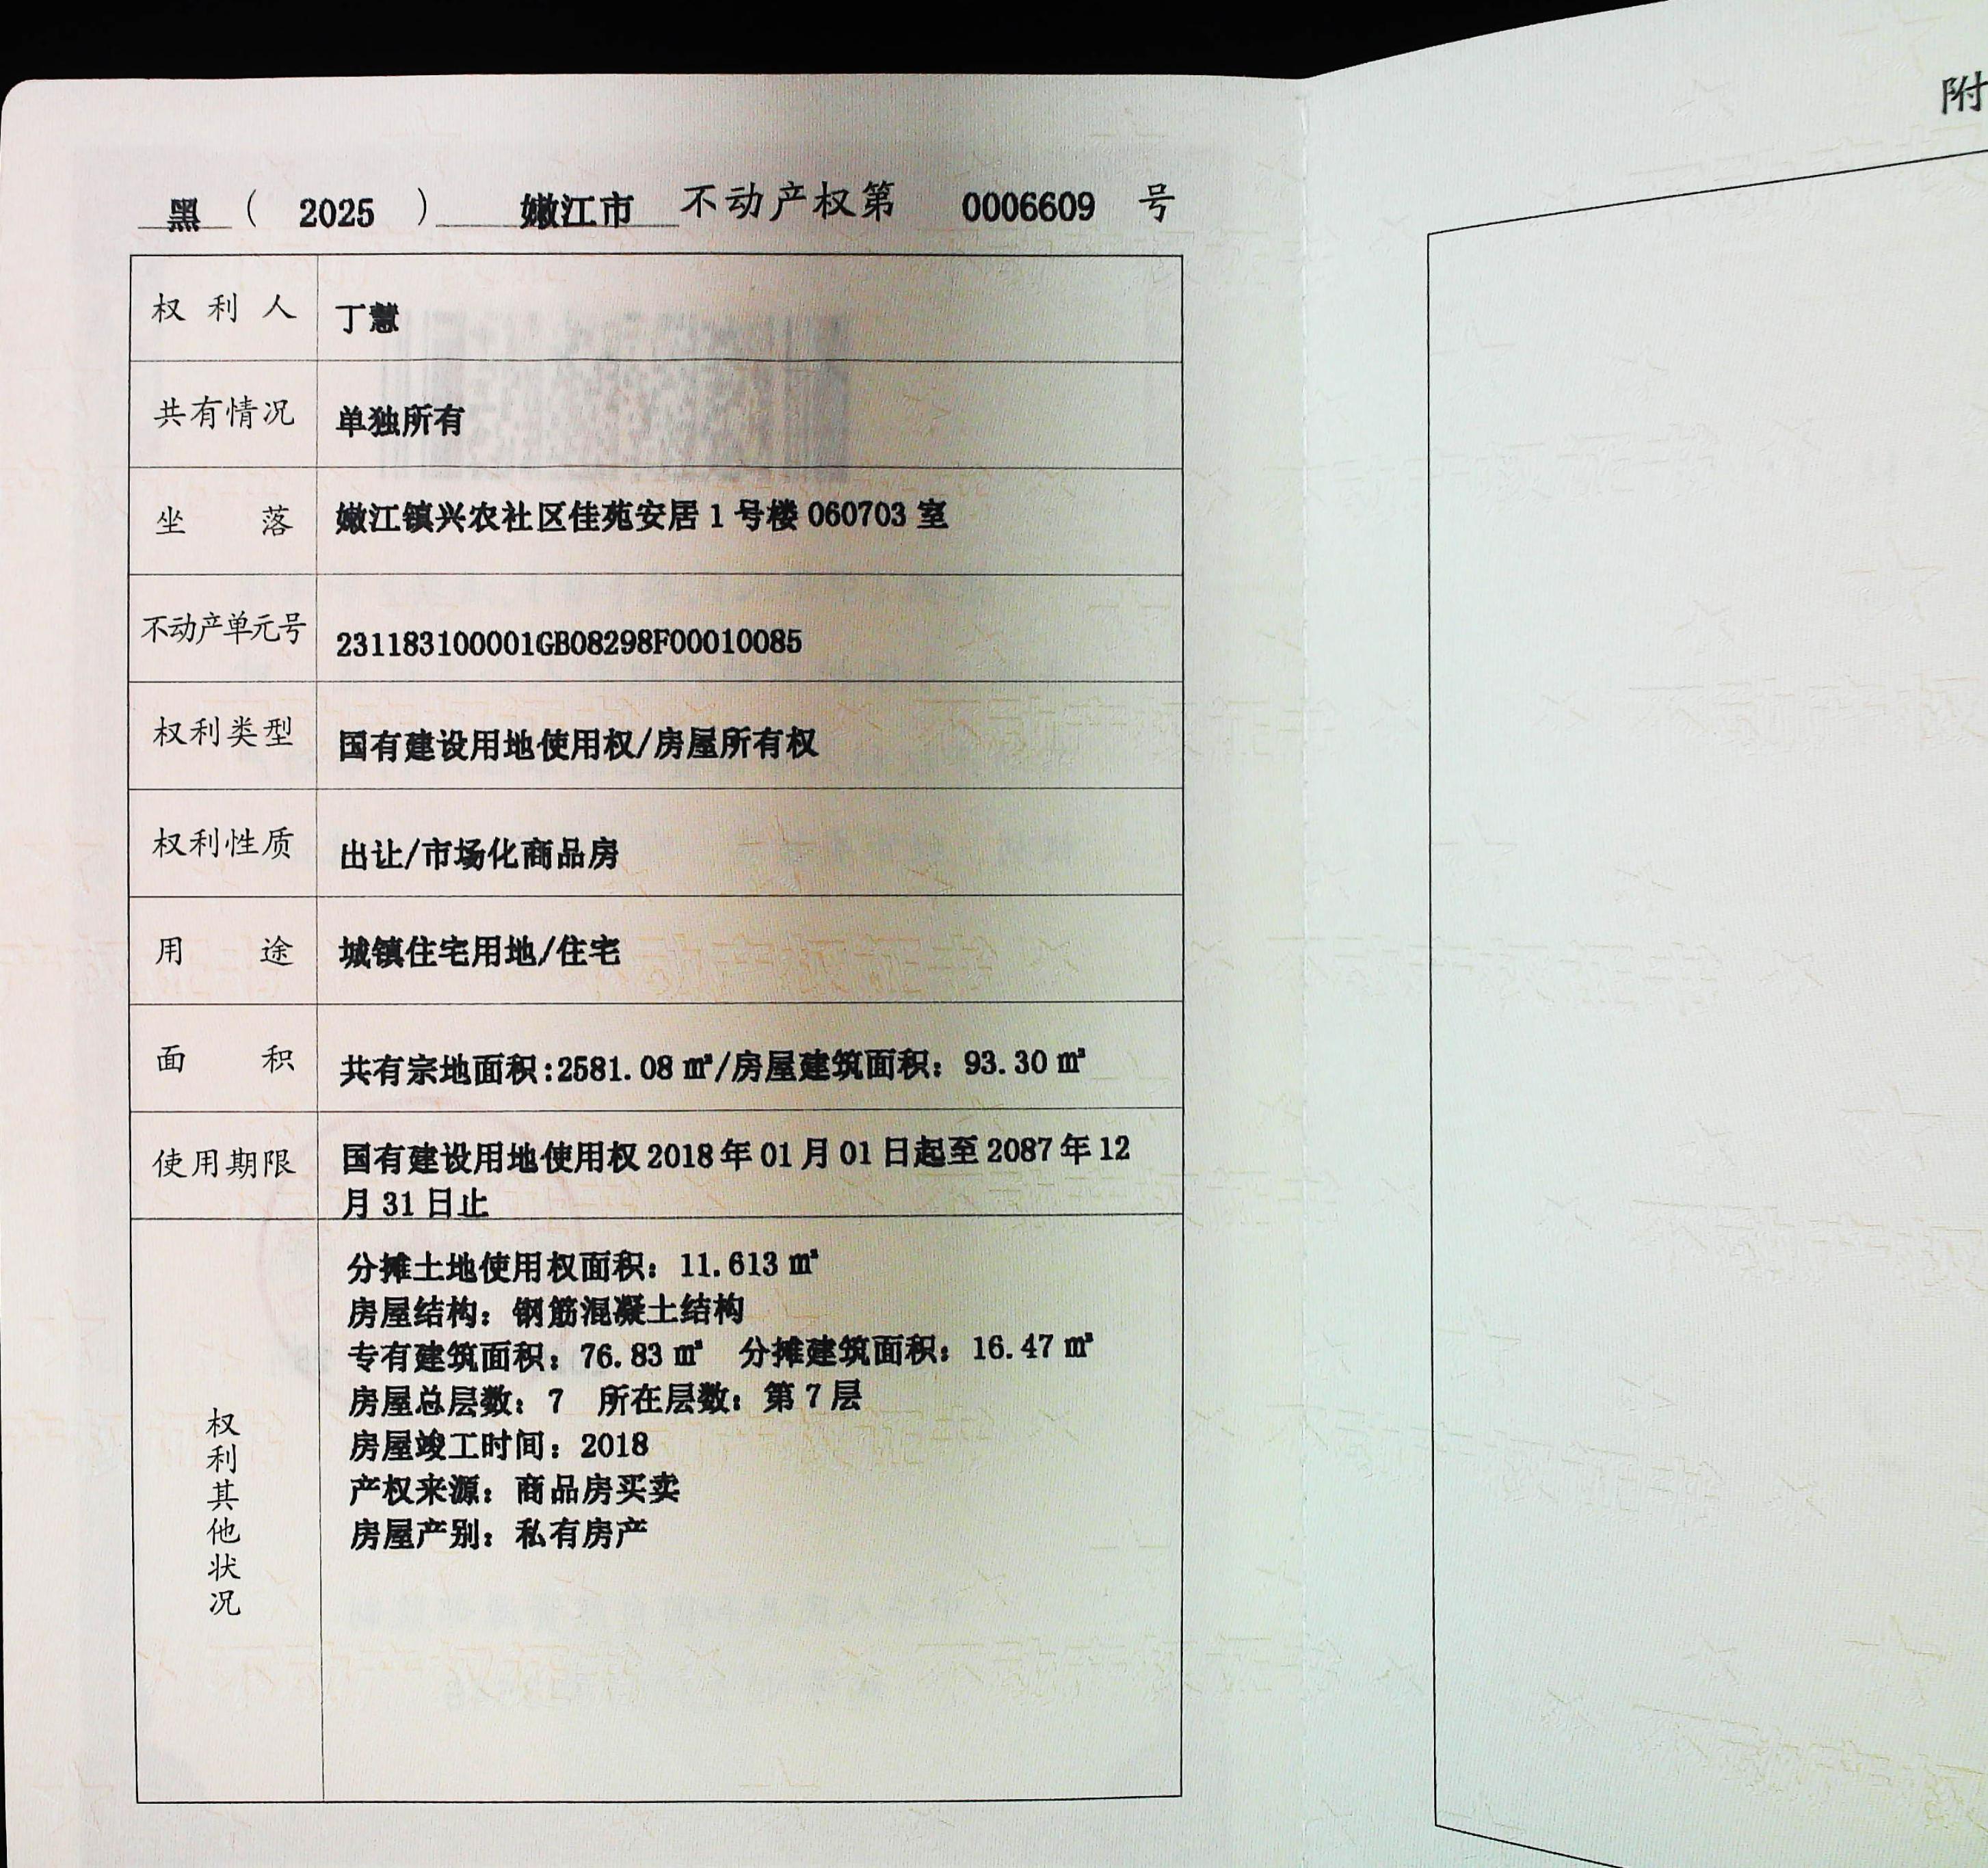 黑 ( 2025 ) 嫩江市 不动产权第 0006609 号
权利人 丁慧
共有情况 单独所有
坐落 嫩江镇兴农社区佳苑安居1号楼060703室
不动产单元号 231183100001GB08298F00010085
权利类型 国有建设用地使用权/房屋所有权
权利性质 出让/市场化商品房
用途 城镇住宅用地/住宅
面积 共有宗地面积:2581.08㎡/房屋建筑面积：93.30㎡
使用期限 国有建设用地使用权2018年01月01日起至2087年12
月31日止
权利其他状况
分摊土地使用权面积：11.613㎡
房屋结构：钢筋混凝土结构
专有建筑面积：76.83㎡ 分摊建筑面积：16.47㎡
房屋总层数：7 所在层数：第7层
房屋竣工时间：2018
产权来源：商品房买卖
房屋产别：私有房产
附